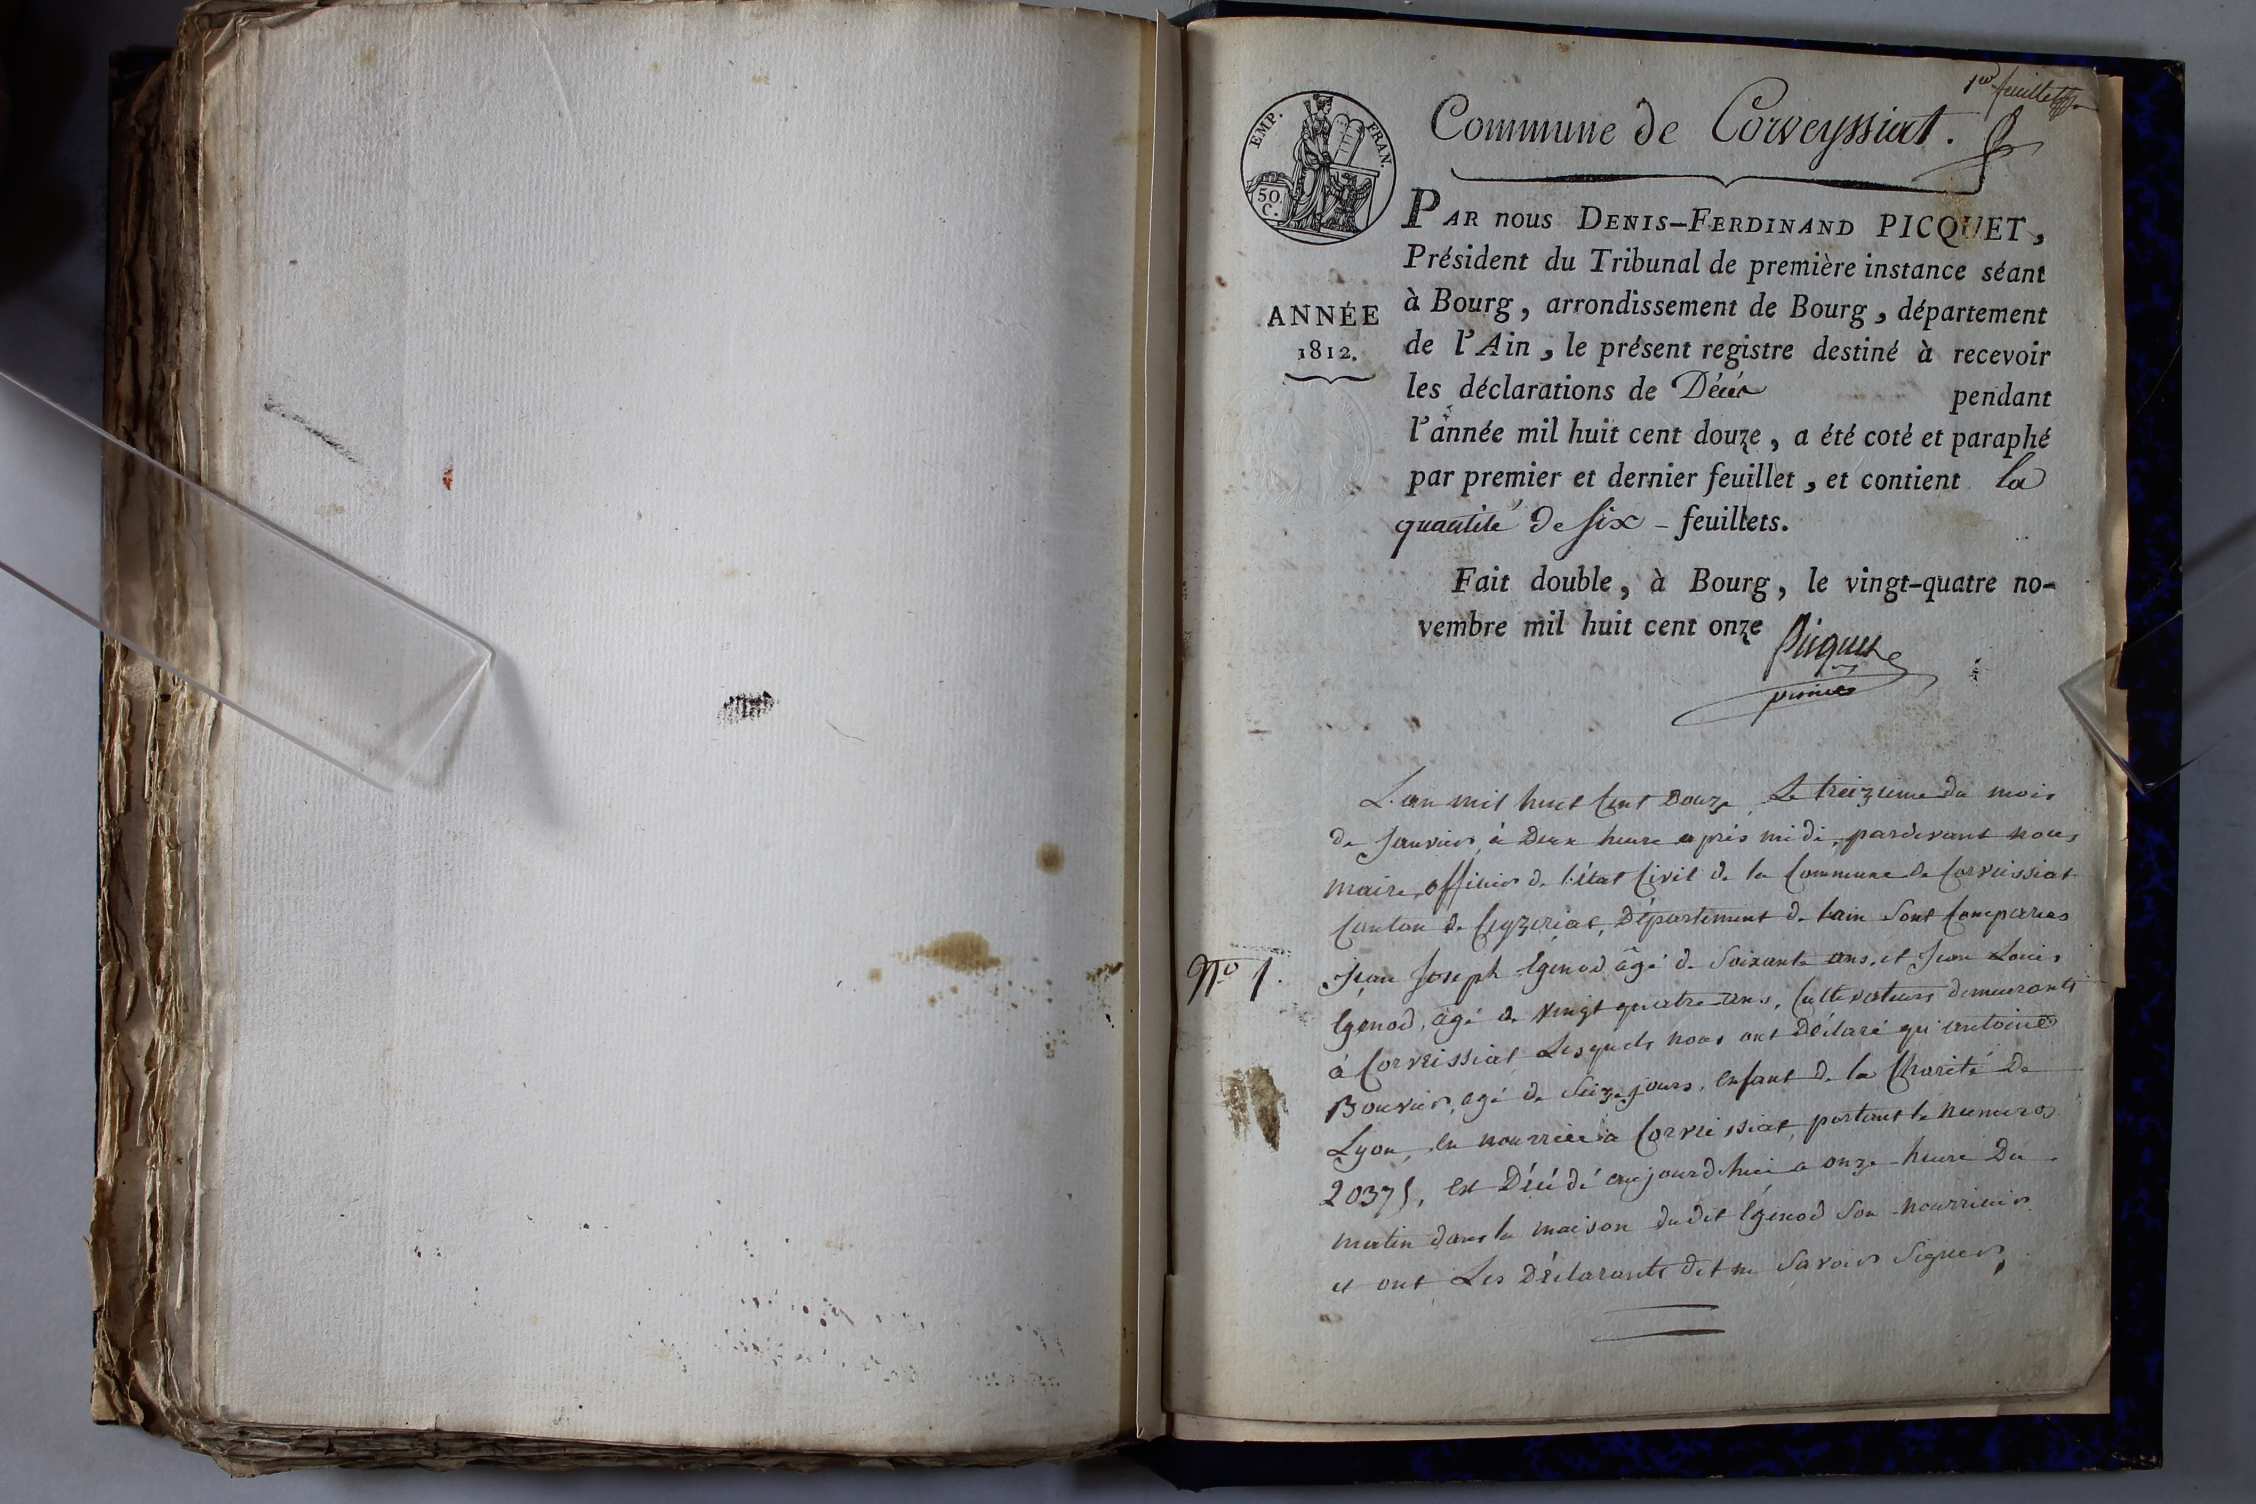 1er feuillet
Commune de Corveyssiat.
EMP. FRAN.
50 C.
PAR nous DENIS-FERDINAND PICQUET,
Président du Tribunal de première instance séant
à Bourg, arrondissement de Bourg, département
de l'Ain, le présent registre destiné à recevoir
les déclarations de Décés pendant
l'année mil huit cent douze, a été coté et paraphé
par premier et dernier feuillet, et contient la
quantité de six - feuillets.
ANNÉE
1812.
Fait double, à Bourg, le vingt-quatre no-
vembre mil huit cent onze
Picquet
L'an mil huit Cent Douze Le treizieme du mois
de Janvier, à Deux heure après midi, pardevant nous
maire, officier de l'état Civil de la Commune de Corveissiat
Canton de Ceyzeriat, Département de lain Sont Comparus
No 1.
Jean Joseph Egenod, âgé de Soixante ans, et Jean Louis
Egenod, âgé de vingt quatre ans, Cultivateurs demeurants
à Corveissiat Lesquels nous ont Déclaré qu'antoine
Bouvier, agé de Seize jours, enfant de la Charité De
Lyon, en nourrice a Corveissiat, portant le numeros
20375, est Décédé aujourd'hui a onze heure Du
matin dans la maison dudit Egenod Son nourricier
et ont Les Déclarants dit ne Savoir Signer,